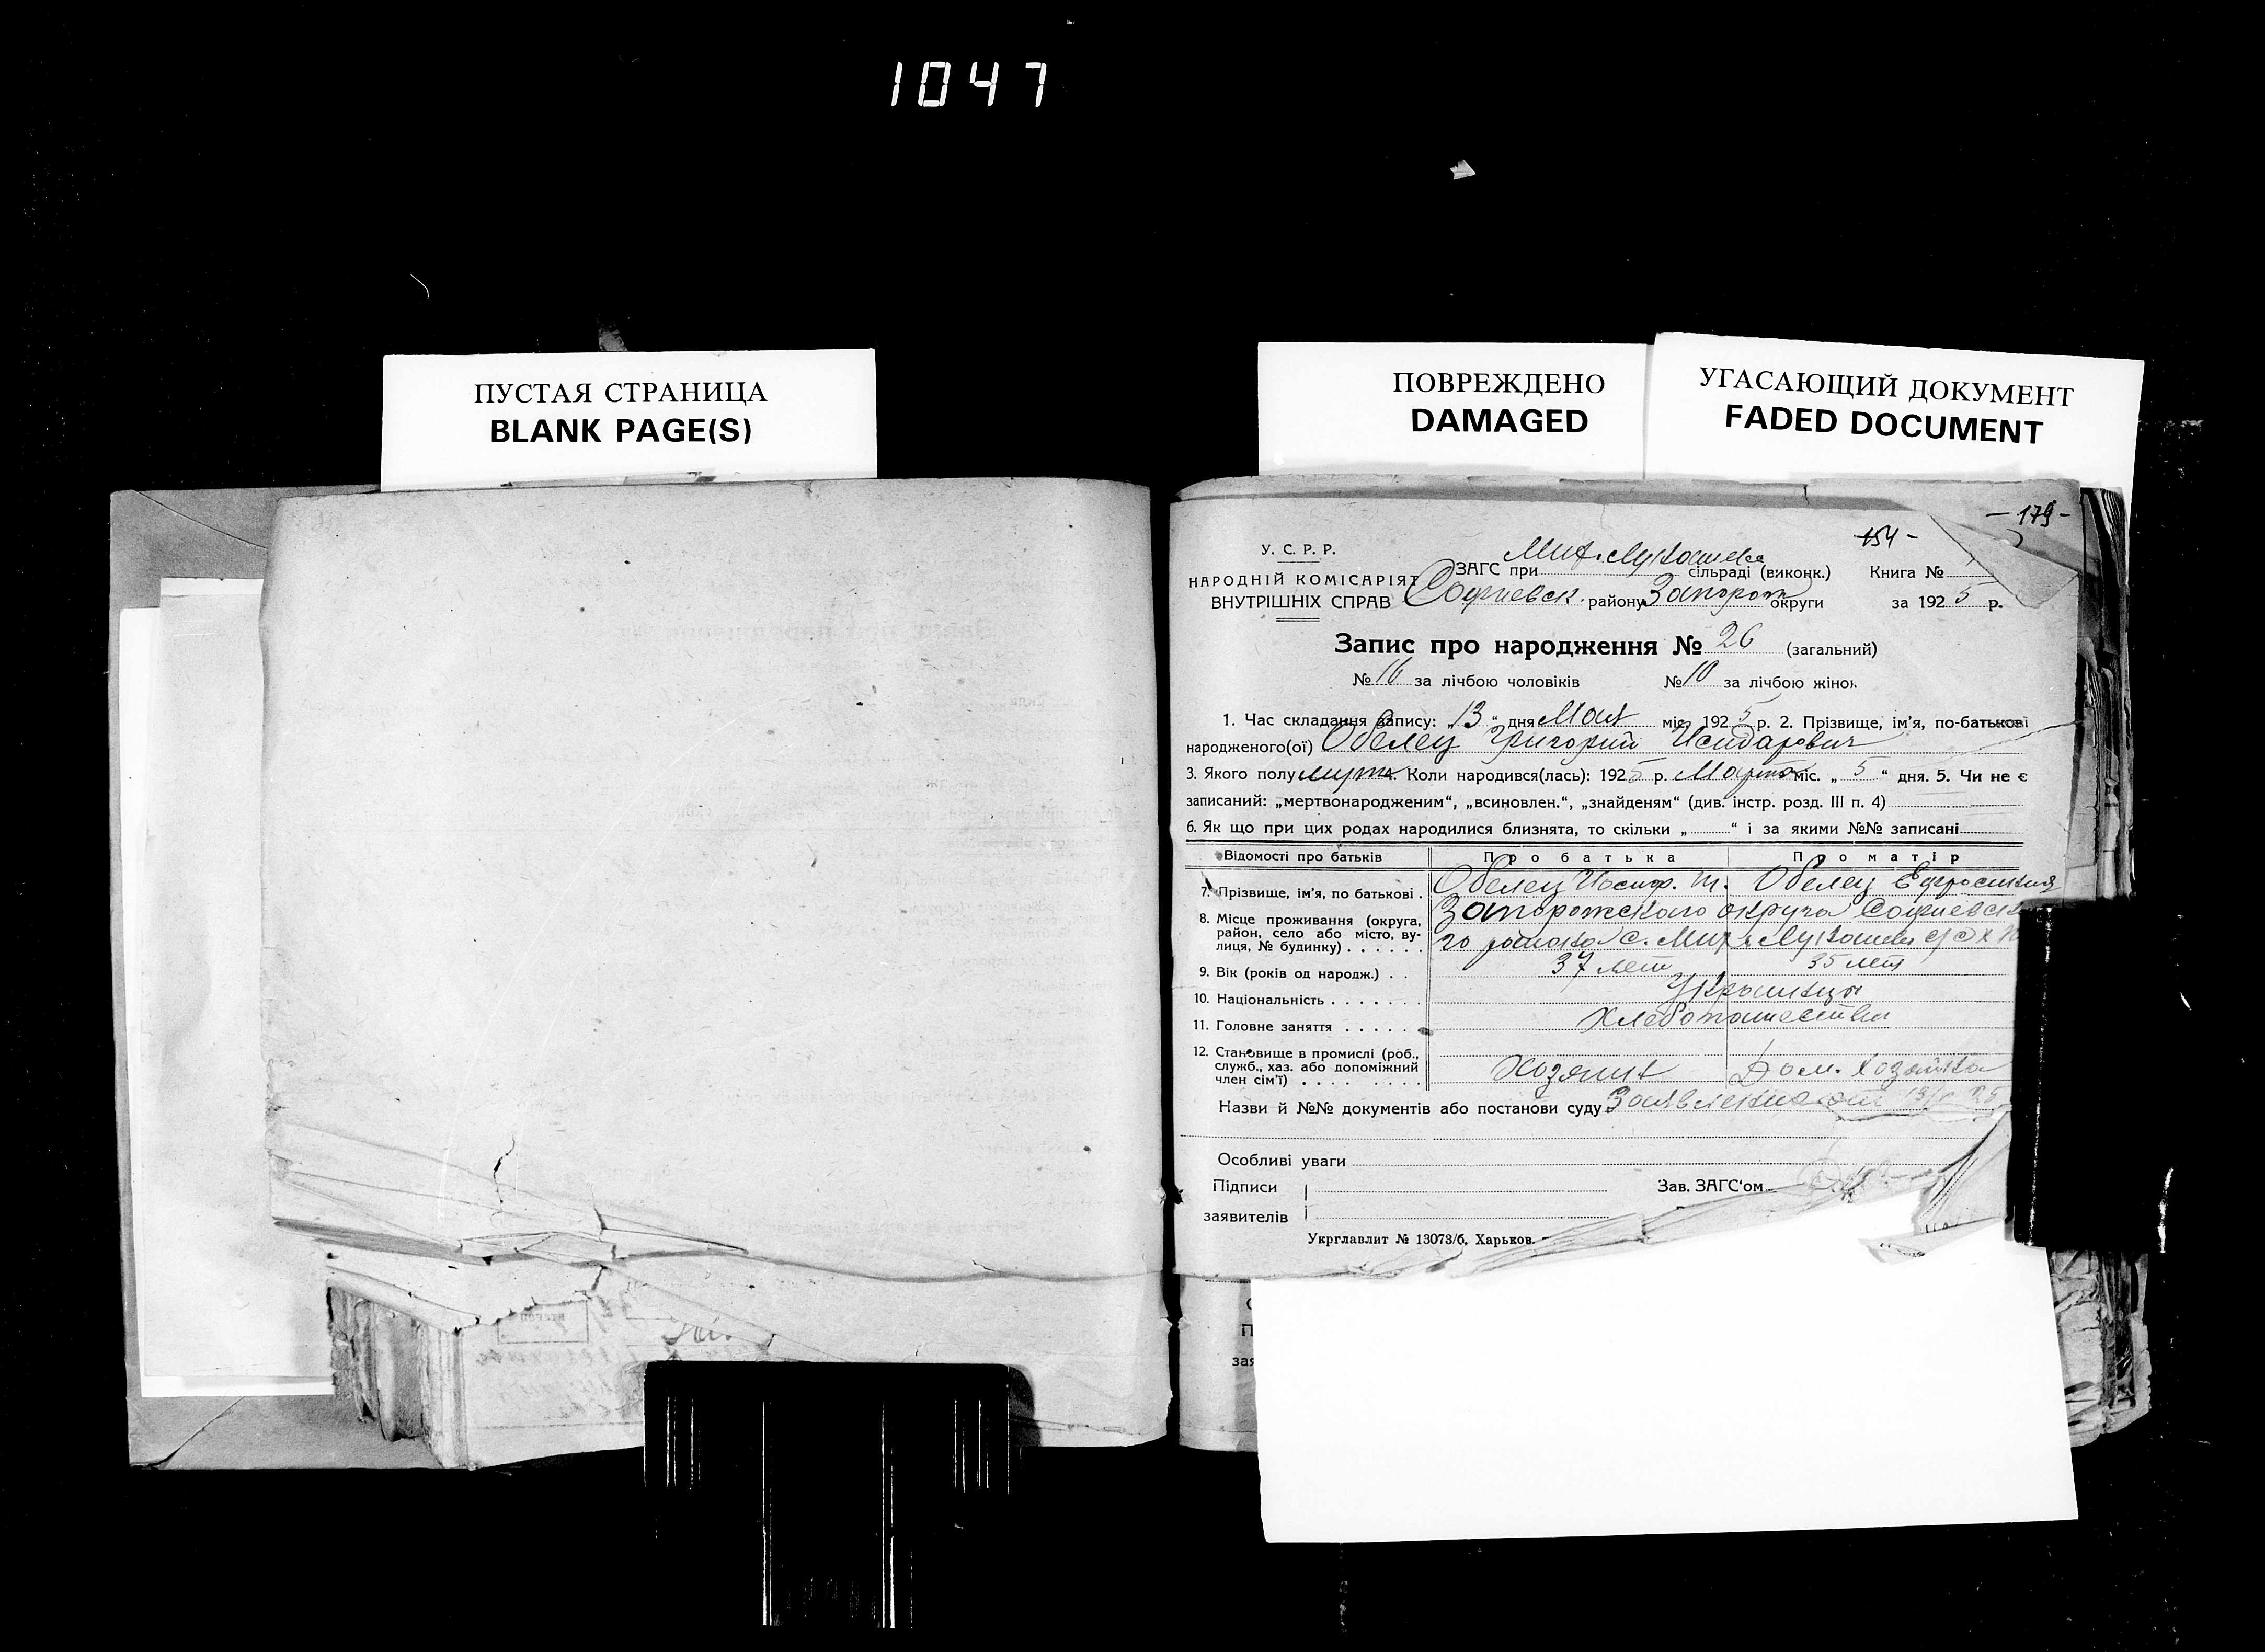 1047
ПУСТАЯ СТРАНИЦА
BLANK PAGE(S)
ПОВРЕЖДЕНО
DAMAGED
УГАСАЮЩИЙ ДОКУМЕНТ
FADED DOCUMENT
- 179 -
154 -
У. С. Р. Р.
НАРОДНІЙ КОМІСАРІЯТ
ВНУТРІШНІХ СПРАВ
ЗАГС при сільраді (виконк.) Книга №
Софиевск. району Запорож округи за 1925 р.
Запис про народження № 26 (загальний)
№ 16 за лічбою чоловіків № 10 за лічбою жінок
1. Час складання запису: „13“ дня Мая міс. 1925 р. 2. Прізвище, ім’я, по-батькові
народженого(ої) Обелец Григорий Исидарович
3. Якого полу мужс. 4. Коли народився(лась): 1925 р. Марта міс. „5“ дня. 5. Чи не є
записаний: „мертвонародженим“, „всиновлен.“, „знайденям“ (див. інстр. розд. III п. 4)
6. Як що при цих родах народилися близнята, то скільки „ “ і за якими №№ записані
Відомості про батьків Про батька Про матір
7. Прізвище, ім’я, по батькові . Обелец Обелец Ефросиния
8. Місце проживання (округа, район, село або місто, вулиця, № будинку) . . . . . . Запорожского округа Софиевска
го района с.
9. Вік (років од народж.) . . 37 лет 35 лет
10. Національність . . . . . . . Украинцы
11. Головне заняття . . . . . . Хлебопашество
12. Становище в промислі (роб.,
служб., хаз. або допоміжний
член сім’ї) . . . . . . . . . Хозяин Дом. хозяйка
Назви й №№ документів або постанови суду Заявление от
Особливі уваги
Підписи
заявителів
Зав. ЗАГС‘ом
Укрглавлит № 13073/б. Харьков.